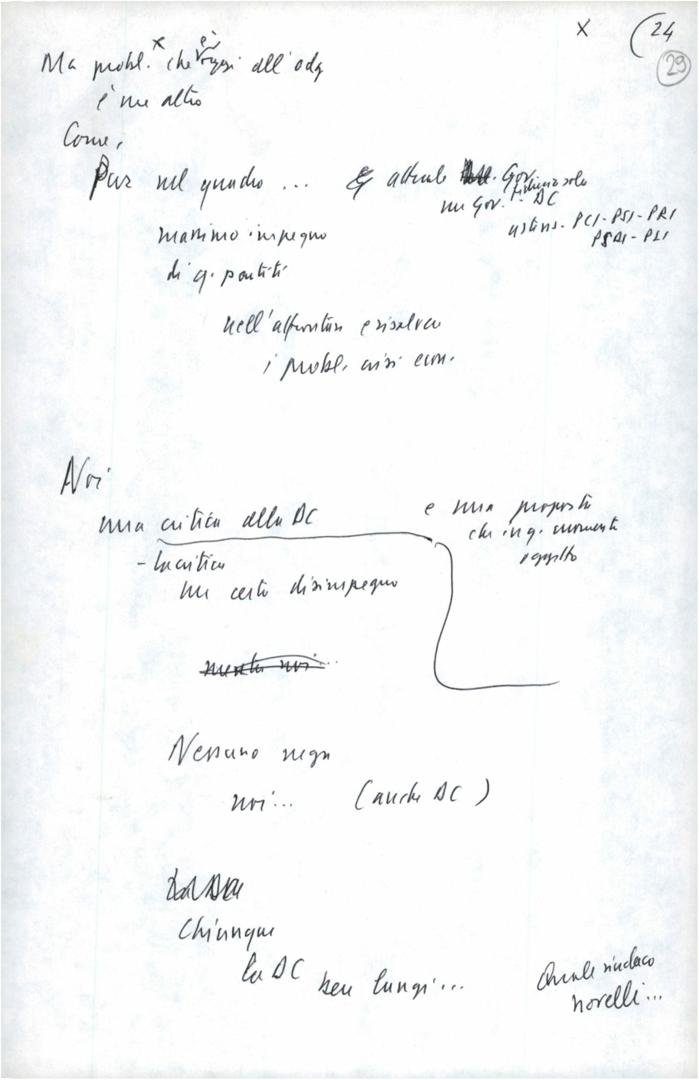 x (24
29
Ma probl. x che è oggi all'odg
è un altro
Come,
Pur nel quadro ... attuale Gov.
un Gov. solo DC
astens. PCI-PSI-PRI
PSDI-PLI
massimo impegno
di q. partiti
nell'affrontare e risolvere
i probl. crisi econ.
Noi
una critica alla DC e una proposta
che in q. momento
- la critica
un certo disimpegno
Nessuno nega
noi... (anche DC)
Chiunque
la DC ben lungi...
Quale sindaco
Novelli...